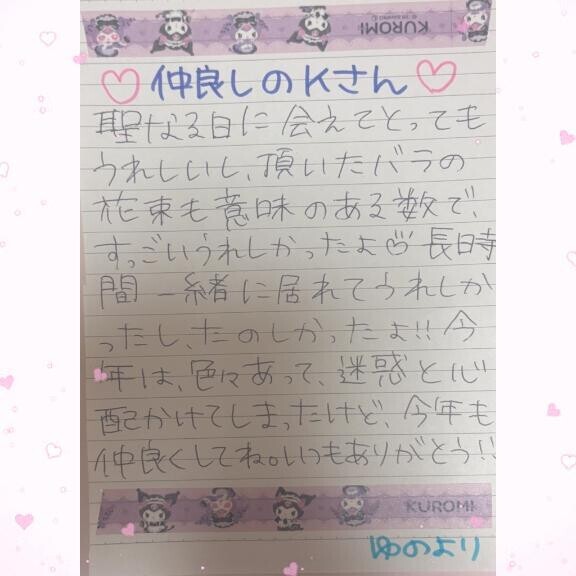 KUROMI
仲良しのKさん
聖なる日に会えてとっても
うれしいし、頂いたバラの
花束も意味のある数で、
すっごいうれしかったよ 長時
間一緒に居れてうれしか
ったし、たのしかったよ!! 今
年は、色々あって、迷惑と心
配かけてしまったけど、今年も
仲良くしてね。いつもありがとう!!
KUROMI
ゆのより